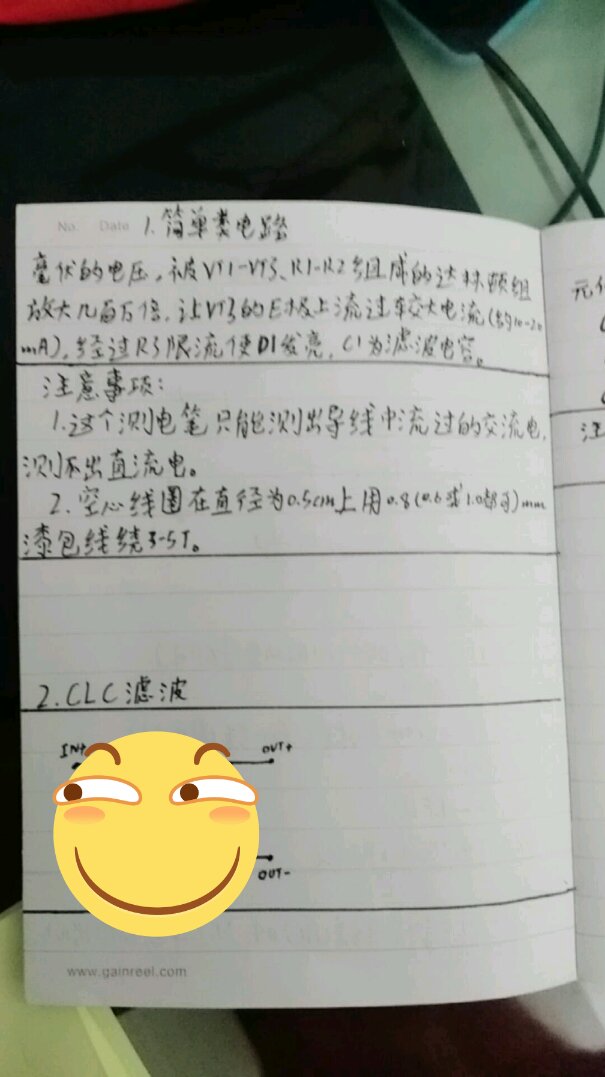 No. Date 1.简单类电路
毫伏的电压,被VT1-VT3、R1-R2组成的达林顿组
放大几百万倍,让VT3的E极上流过较大电流(约10-20
mA),经过R3限流使D1发亮,C1为滤波电容。
注意事项:
1.这个测电笔只能测出导线中流过的交流电,
测不出直流电。
2.空心线圈在直径为0.5cm上用0.8(0.6或1.0都可)mm
漆包线绕3-5T。
2.CLC滤波
IN+ OUT+
OUT-
www.gainreel.com
元
注